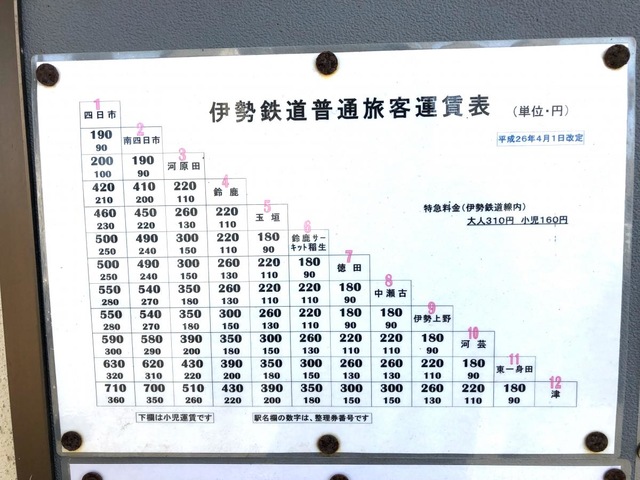 伊勢鉄道普通旅客運賃表 (単位・円)
平成26年4月1日改定
特急料金(伊勢鉄道線内)
大人310円 小児160円
1
四日市
190 2
90 南四日市
200 190 3
100 90 河原田
420 410 220 4
210 200 110 鈴鹿
460 450 260 220 5
230 220 130 110 玉垣
500 490 300 220 180 6
250 240 150 110 90 鈴鹿サーキット稲生
500 490 300 260 220 180 7
250 240 150 130 110 90 徳田
550 540 350 260 220 220 180 8
280 270 180 130 110 110 90 中瀬古
550 540 350 300 260 220 180 180 9
280 270 180 150 130 110 90 90 伊勢上野
590 580 390 350 300 260 220 220 180 10
300 290 200 180 150 130 110 110 90 河芸
630 620 430 390 350 300 260 260 220 180 11
320 310 220 200 180 150 130 130 110 90 東一身田
710 700 510 430 390 350 300 300 260 220 180 12
360 350 260 220 200 180 150 150 130 110 90 津
下欄は小児運賃です 駅名欄の数字は、整理券番号です